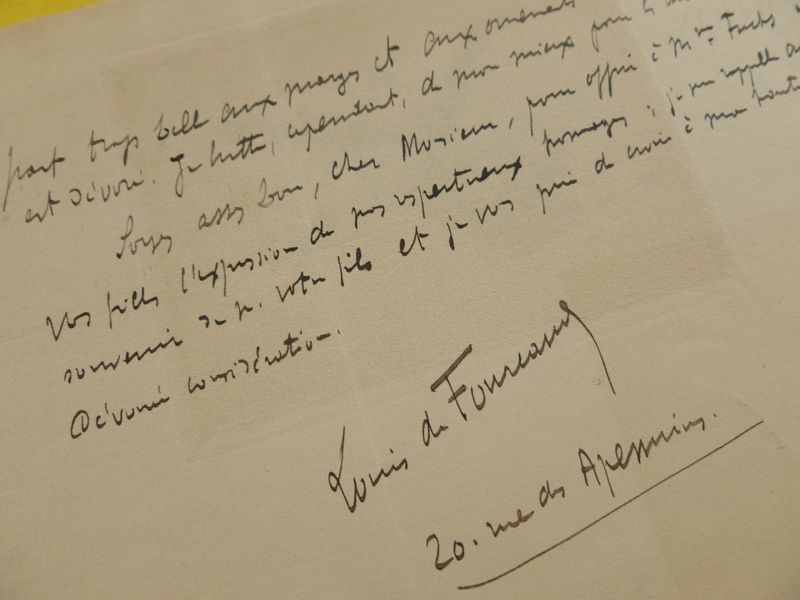 part trop belle aux marges et aux ornements
est dévoré. Je lutte, cependant, de mon mieux pour
Soyez assez bon, cher Monsieur, pour offrir à Mme Fuchs
vos filles l'expression de mes respectueux hommages ; je me rappelle au
souvenir de M. votre fils et je vous prie de croire à ma haute
Dévouée considération.
Louis de Fourcaud
20. rue des Apennins.